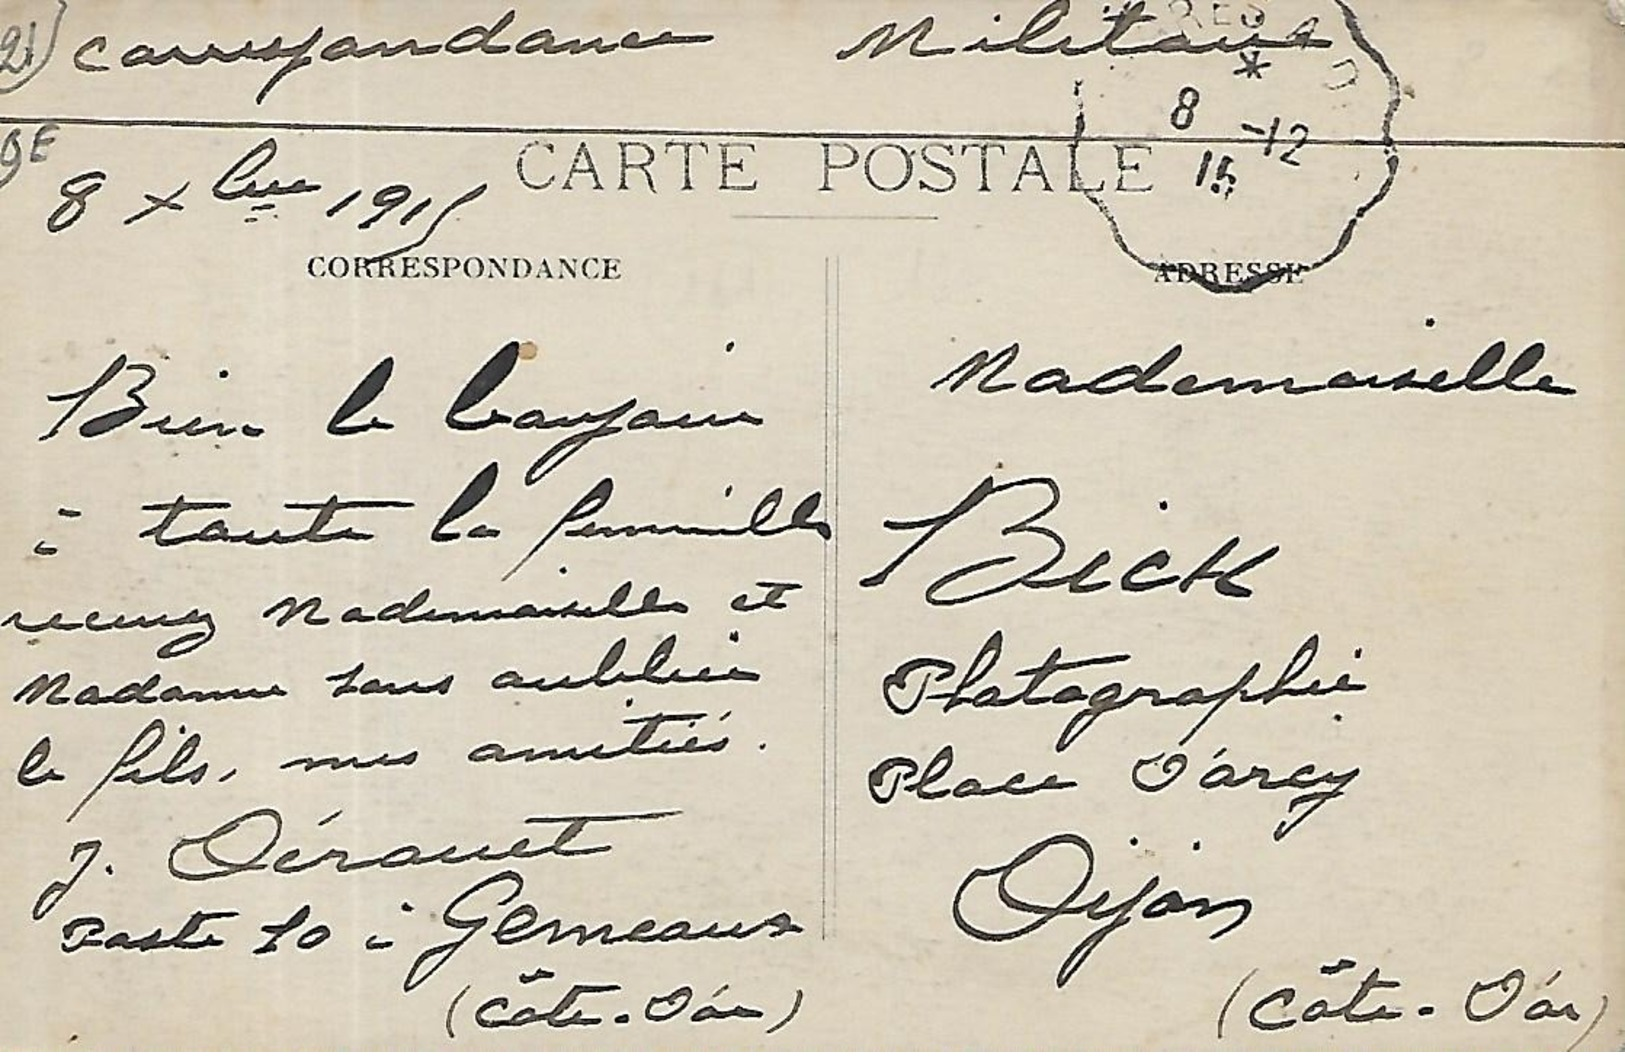 21
Correspondance Militaire
RES
*
8 -12
15
9E
CARTE POSTALE
8 Xbre 1915
CORRESPONDANCE
ADRESSE
Bien le bonjour
à toute la famille
recevez Mademoiselle et
Madame sans oublier
le fils, mes amitiés.
J. Dérouet
Poste 10 à Gemeaux
(Côte-D'or)
Mademoiselle
Bick
Photographie
Place D'arcy
Dijon
(Côte-D'or)